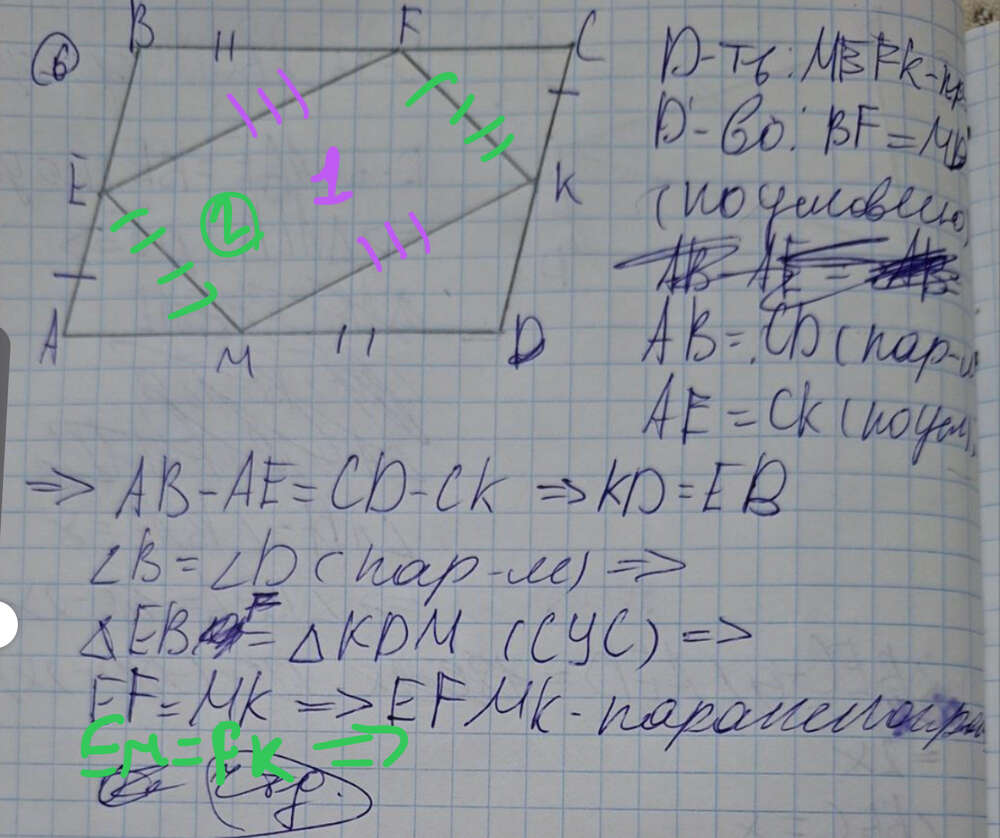 6
B F C
E K
A M D
1
2
D-ть: MEFK-пар
D-во: BF=MD
(по условию)
AB=CD (пар-м
AE=CK (по усл
=> AB-AE=CD-CK => KD=EB
∠B=∠D (пар-м) =>
△EBF=△KDM (СУС) =>
EF=MK => EFMK-параллелограм
EM=FK =>
чтд.